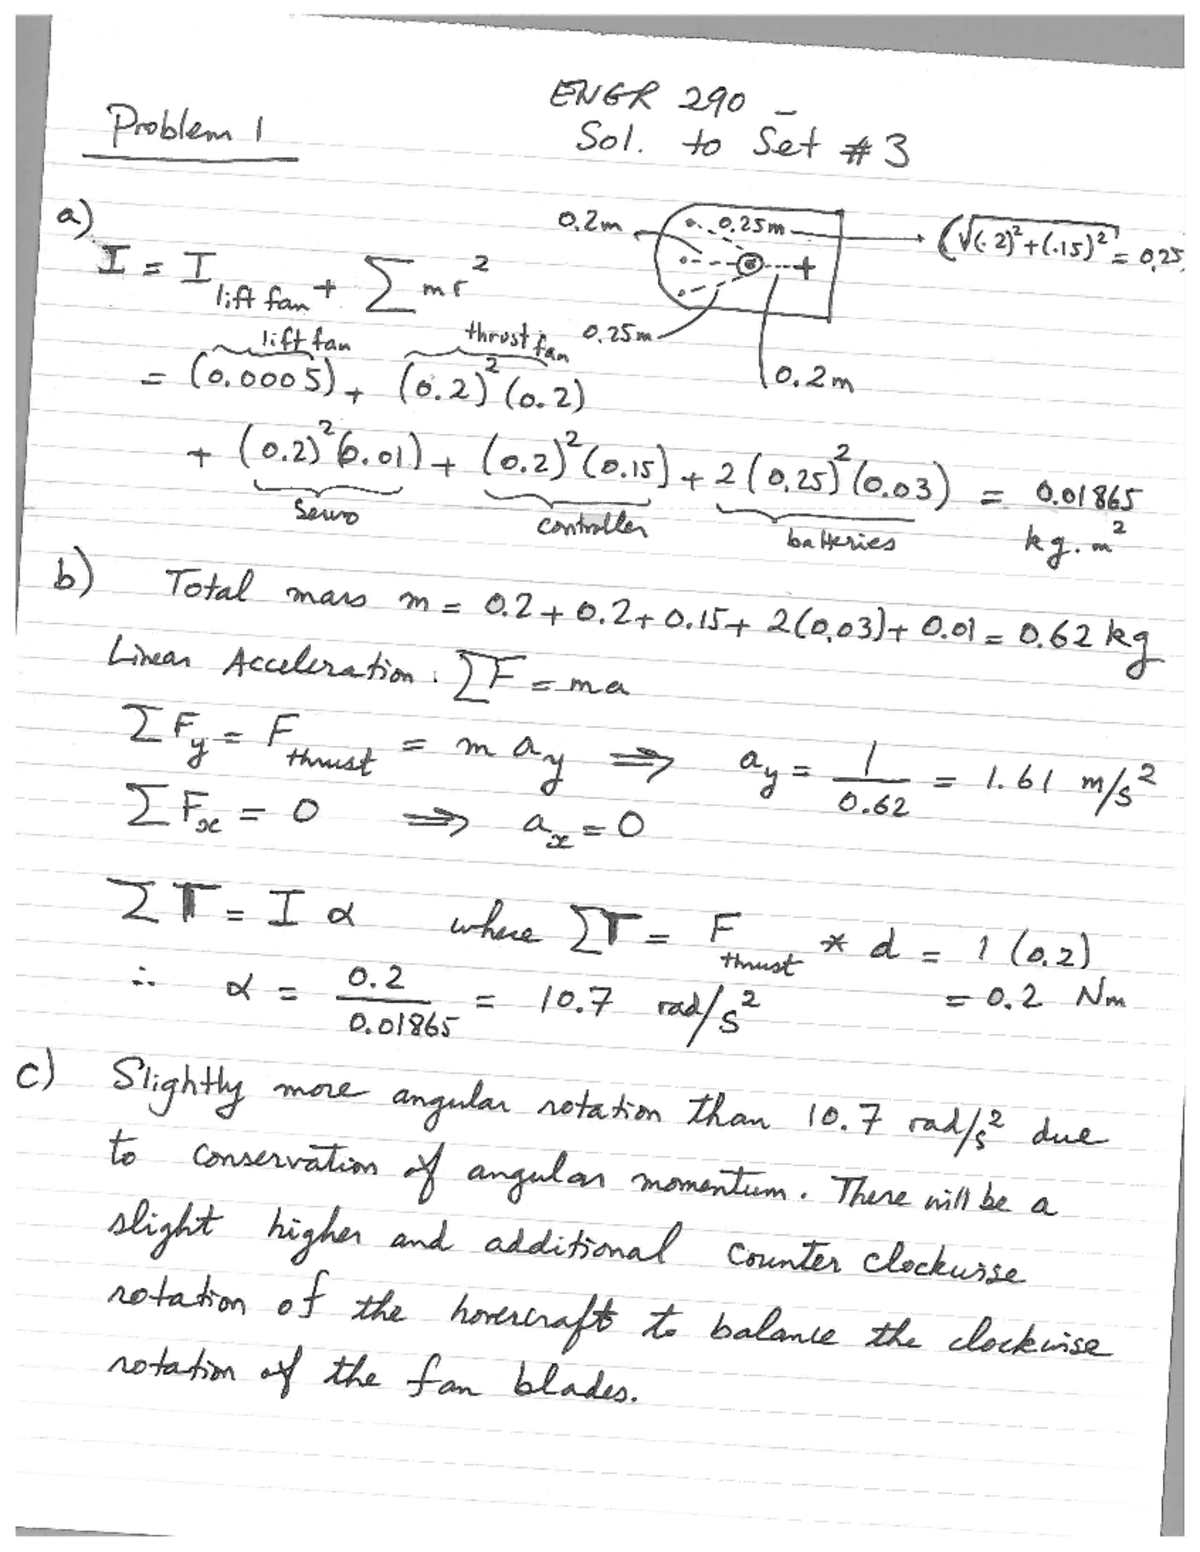 ENGR 290
Problem 1
Sol. to Set # 3
a)
0.2m
0.25m
(√(.2)²+(.15)² = 0.25
I = I lift fan + Σ m r²
lift fan
thrust fan
0.25m
= (0.0005) + (0.2)² (0.2)
0.2m
+ (0.2)² (0.01) + (0.2)² (0.15) + 2 (0.25)² (0.03) = 0.01865
servo
controller
batteries
kg.m²
b) Total mass m = 0.2 + 0.2 + 0.15 + 2(0.03) + 0.01 = 0.62 kg
Linear Acceleration : ΣF = ma
ΣFy = F thrust = m ay ⇒ ay = 1/0.62 = 1.61 m/s²
ΣFx = 0 ⇒ ax = 0
ΣT = I α where ΣT = F thrust * d = 1 (0.2)
= 0.2 Nm
∴ α = 0.2/0.01865 = 10.7 rad/s²
c) Slightly more angular rotation than 10.7 rad/s² due
to conservation of angular momentum. There will be a
slight higher and additional counter clockwise
rotation of the hovercraft to balance the clockwise
rotation of the fan blades.